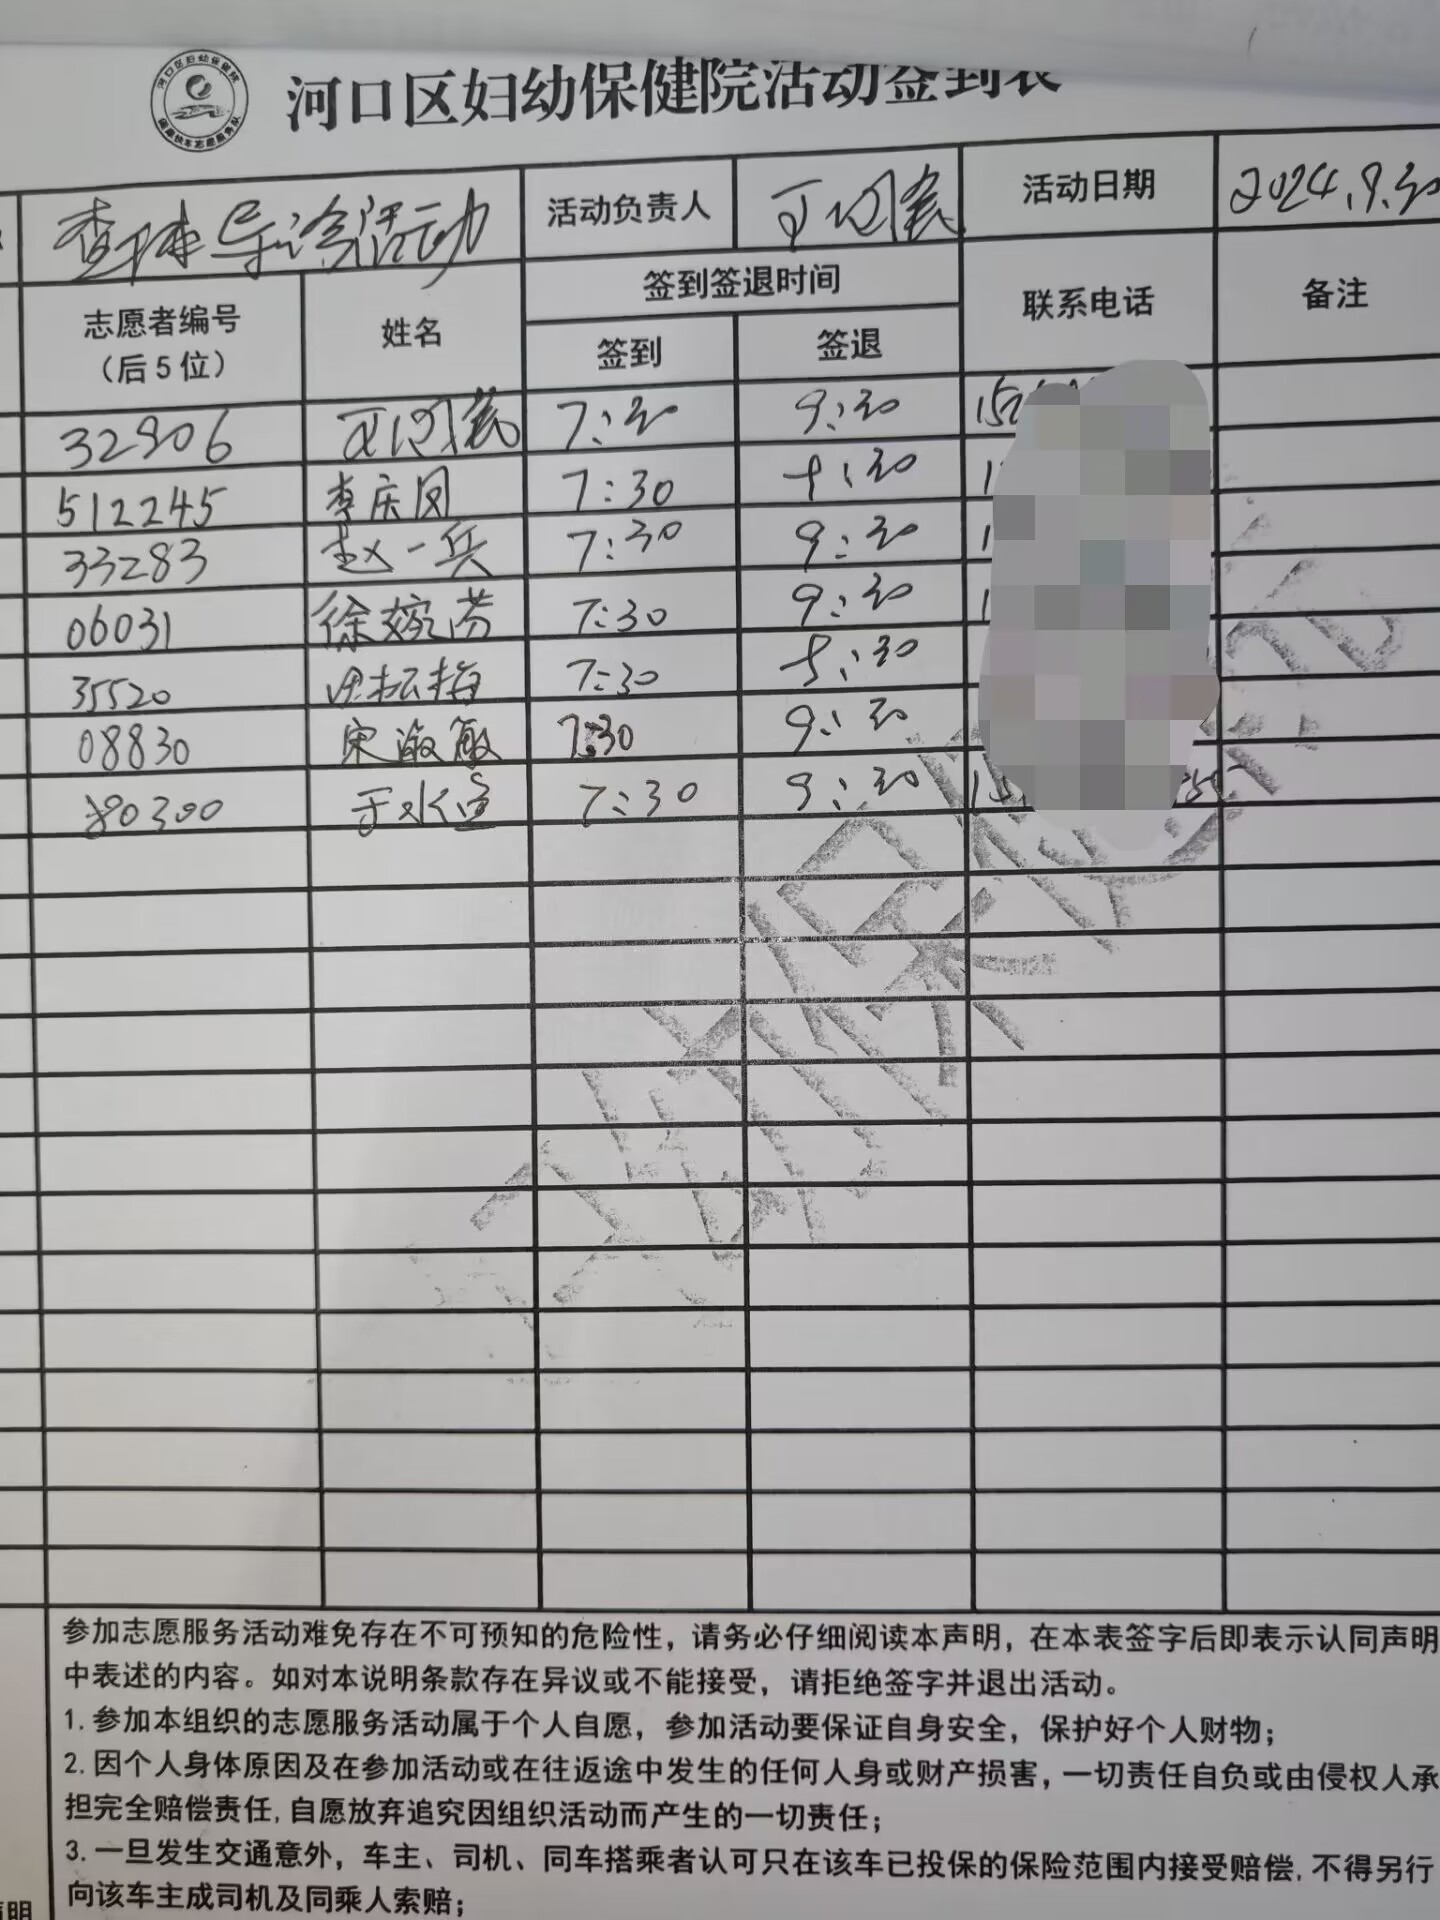 河口区妇幼保健院
河口区妇幼保健院活动签到表
查体导诊活动 活动负责人 活动日期 2024.9.30
志愿者编号 姓名 签到签退时间 联系电话 备注
（后5位） 签到 签退
32906 7:30 9:30
512245 李庆凤 7:30 9:30
33283 赵一兵 7:30 9:30
06031 徐婉芸 7:30 9:30
35520 7:30
08830 宋淑敏 7:30 9:30
80300 于水 7:30 9:30
参加志愿服务活动难免存在不可预知的危险性，请务必仔细阅读本声明，在本表签字后即表示认同声明
中表述的内容。如对本说明条款存在异议或不能接受，请拒绝签字并退出活动。
1.参加本组织的志愿服务活动属于个人自愿，参加活动要保证自身安全，保护好个人财物；
2.因个人身体原因及在参加活动或在往返途中发生的任何人身或财产损害，一切责任自负或由侵权人承
担完全赔偿责任,自愿放弃追究因组织活动而产生的一切责任；
3.一旦发生交通意外，车主、司机、同车搭乘者认可只在该车已投保的保险范围内接受赔偿,不得另行
向该车主成司机及同乘人索赔；
声明